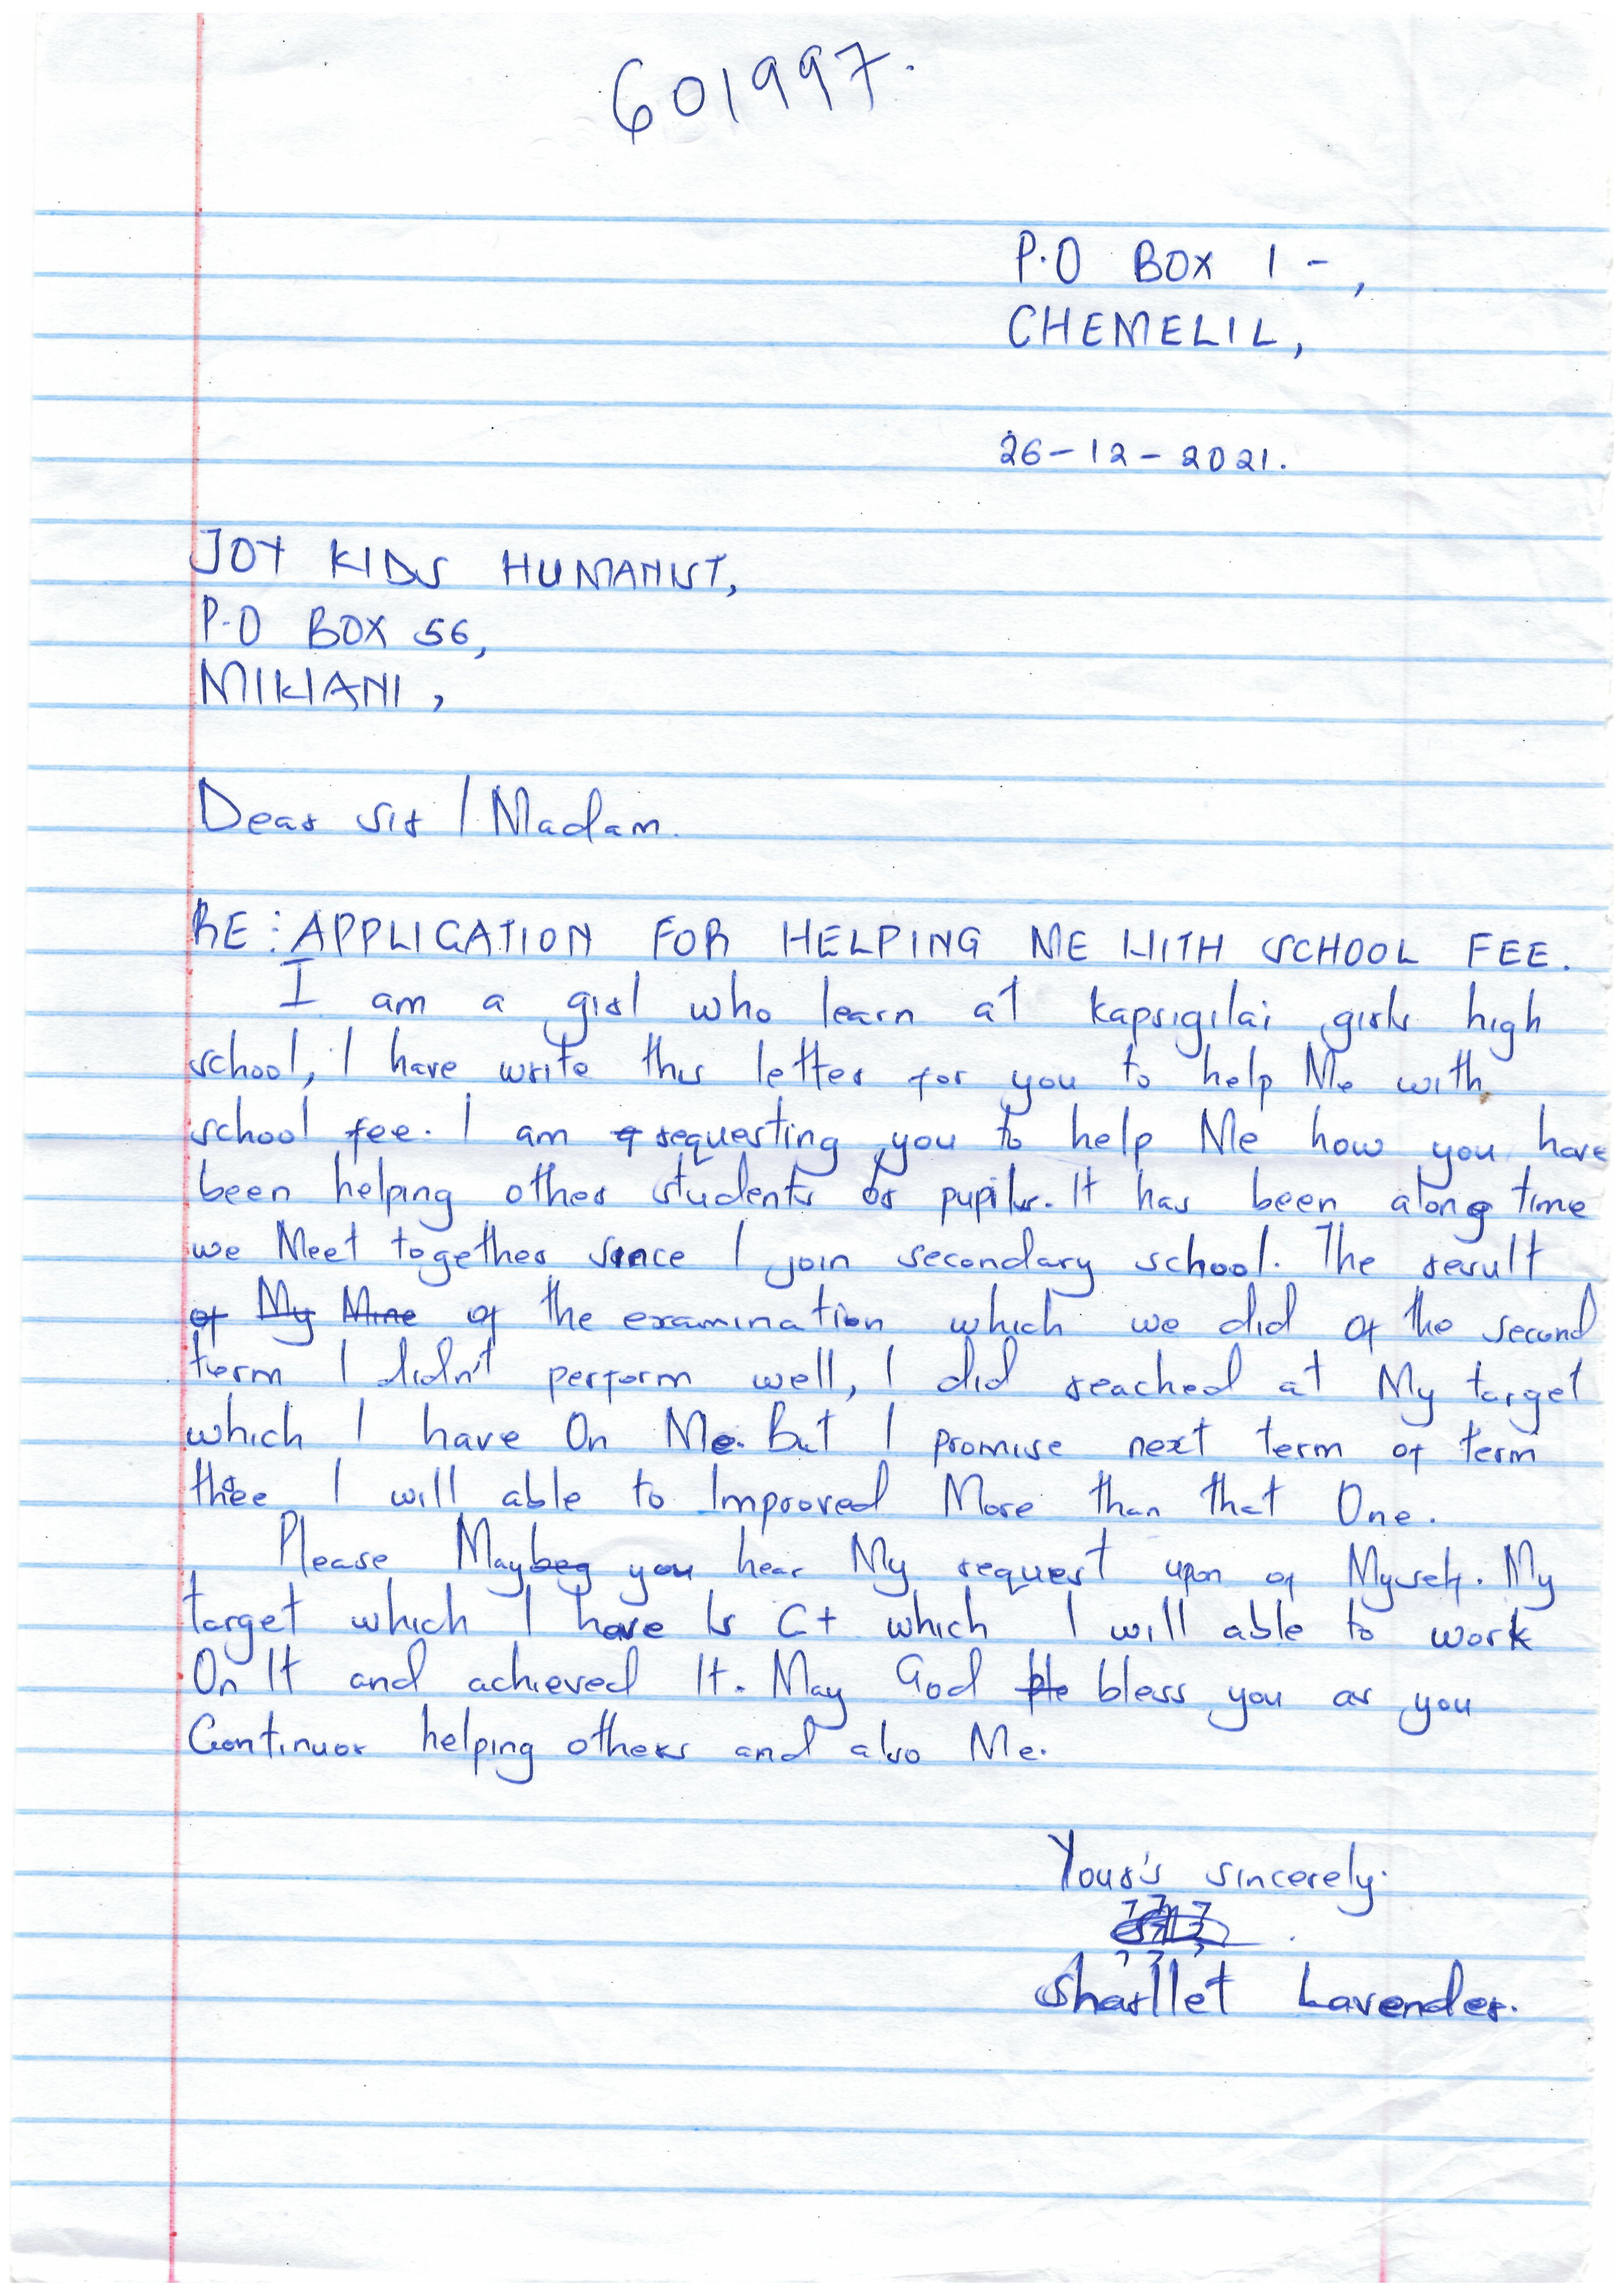 601997.
P.O BOX 1 -,
CHEMELIL,
26-12-2021.
JOY KIDS HUMANIST,
P.O BOX 56,
MIKIANI,
Dear Sir / Madam.
RE: APPLICATION FOR HELPING ME WITH SCHOOL FEE.
I am a girl who learn at kapsigilai girls high
school, I have write this letter for you to help Me with
school fee. I am requesting you to help Me how you have
been helping other students or pupils. It has been along time
we Meet together since I join secondary school. The result
of My Mine of the examination which we did of the second
term I didn't perform well, I did reached at My target
which I have On Me. But I promise next term of term
three I will able to Improved More than that One.
Please May you hear My request upon of Myself. My
target which I have Is C+ which I will able to work
On It and achieved It. May God bless you as you
Continuor helping others and also Me.
Your's sincerely.
Sharllet Lavender.